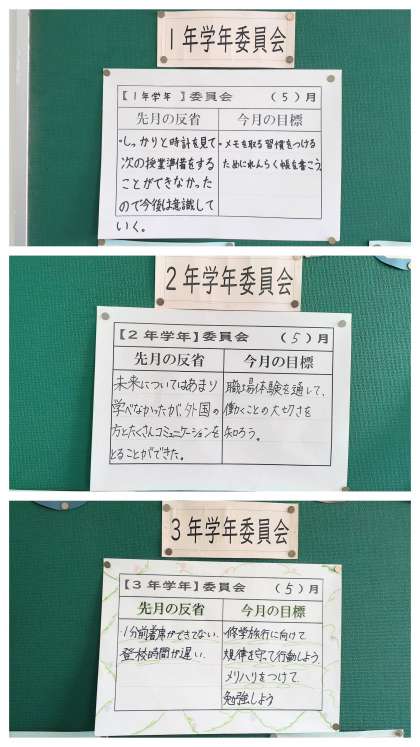 1年学年委員会
【1年学年 】委員会 （5）月
先月の反省
・しっかりと時計を見て
次の授業準備をする
ことができなかった
ので今後は意識して
いく。
今月の目標
・メモを取る習慣をつける
ためにれんらく帳を書こう
2年学年委員会
【2年学年】委員会 （5）月
先月の反省
未来についてはあまり
学べなかったが、外国の
方とたくさんコミュニケーションを
とることができた。
今月の目標
職場体験を通して、
働くことの大切さを
知ろう。
3年学年委員会
【3年学年】委員会 （5）月
先月の反省
・1分前着席ができてない
登校時間が遅い
今月の目標
・修学旅行に向けて
規律を守って行動しよう
メリハリをつけて
勉強しよう